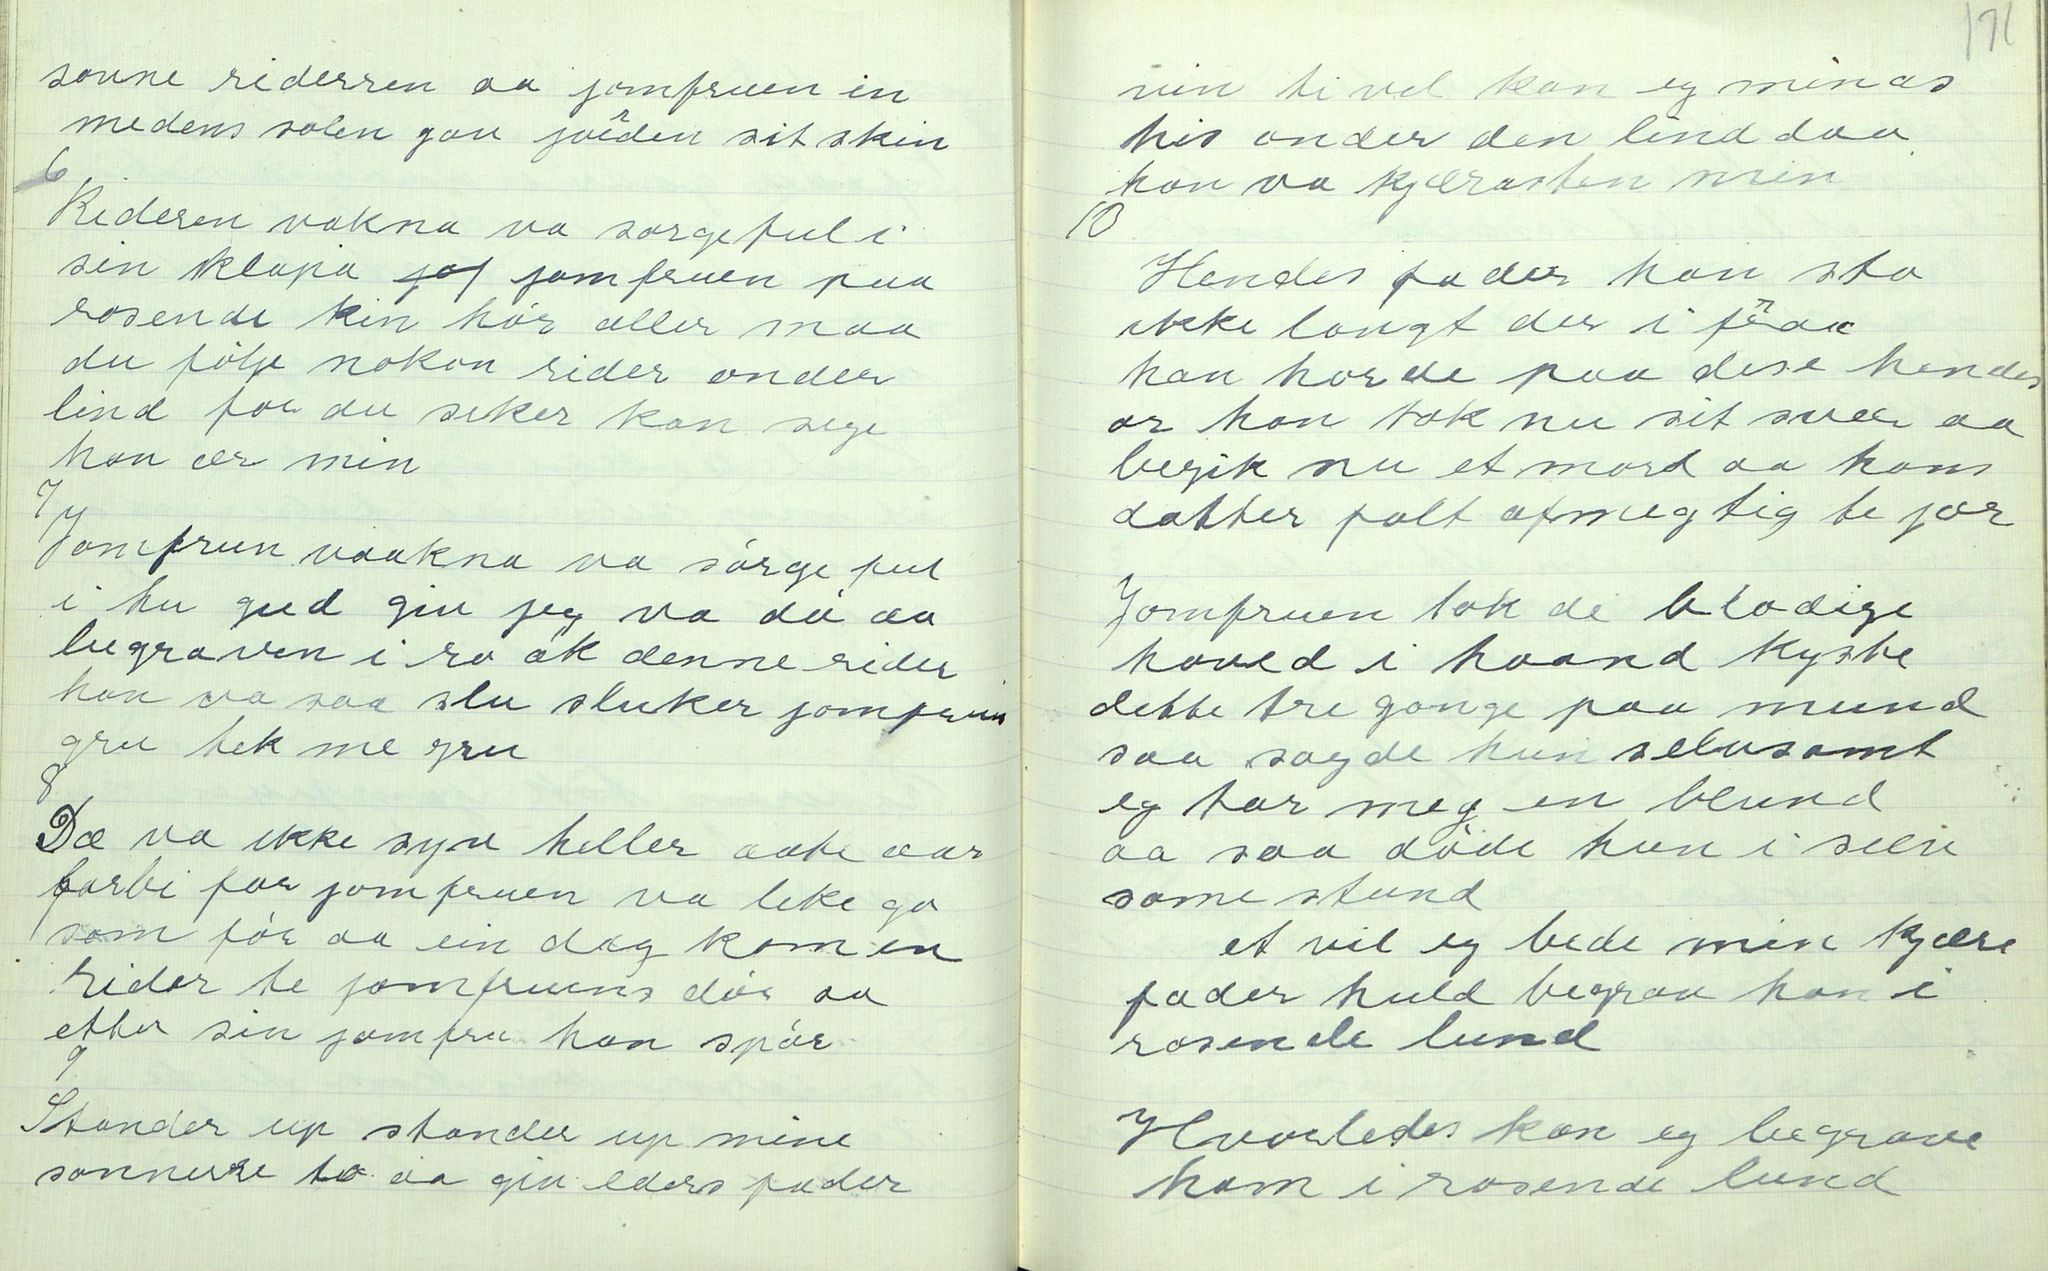 sovne riderren aa jomfruen in
medens solen gav joréden sit skin
6
Rideren vakna va sorgeful i
sin klapa jof jomfruen paa
rosende kin hór aller maa
du fólje nokon rider onder
lind for du seker kan sege
han ær min
7
Jomfruen vaakna va sórge ful
i hu gud giv jeg va dó aa
begraven i ro ak denne rider
han va saa slu sluker jomfruin
gru tek me gru
8
Dæ va ikke syv heller aate aar
forbi for jomfruen va leke go
som fór aa ein dag kom en
rider te jomfruens dór aa
etter sin jomfru han spór
9
Stander up stander up mine
sonnerre to aa giv eders fader
171
vin ti vel kan eg minas
his onder den lind daa
han va kjærasten min
10
Hendes fader han sto
ikke langt der i fraa
han horde paa dese hendes
or han tok nu sit svær aa
begik nu et mord aa hans
datter falt afmegtig te jor
Jomfruen tok de blodige
hoved i haand kyste
dette tre gange paa mund
saa sagde hun selvsamt
eg tar meg en blund
aa saa dóde hun i selv
same stund
et vil eg bede min kjære
fader huld begrav han i
rosende lund
Hvorledes kan eg begrave
ham i rosende lund